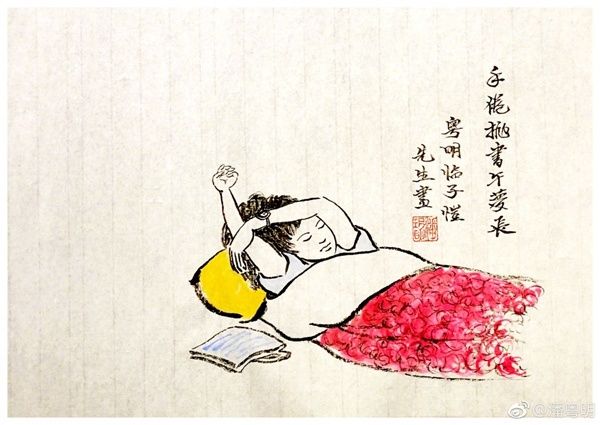 手倦抛書午夢長
粤明临子愷
先生畫
@潘粤明